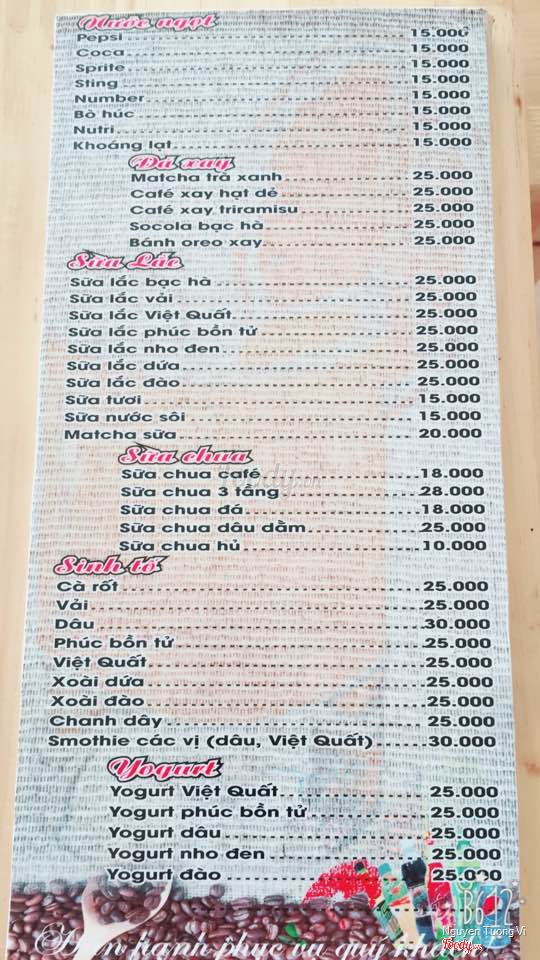 Nước ngọt
Pepsi 15.000
Coca 15.000
Sprite 15.000
Sting 15.000
Number 15.000
Bò húc 15.000
Nutri 15.000
Khoáng lạt 15.000
Đá xay
Matcha trà xanh 25.000
Café xay hạt dẻ 25.000
Café xay triramisu 25.000
Socola bạc hà 25.000
Bánh oreo xay 25.000
Sữa Lắc
Sữa lắc bạc hà 25.000
Sữa lắc vải 25.000
Sữa lắc Việt Quất 25.000
Sữa lắc phúc bồn tử 25.000
Sữa lắc nho đen 25.000
Sữa lắc dứa 25.000
Sữa lắc đào 25.000
Sữa tươi 15.000
Sữa nước sôi 15.000
Matcha sữa 20.000
Sữa chua
Sữa chua café 18.000
Sữa chua 3 tầng 28.000
Sữa chua đá 18.000
Sữa chua dâu dằm 25.000
Sữa chua hủ 10.000
Sinh tố
Cà rốt 25.000
Vải 25.000
Dâu 30.000
Phúc bồn tử 25.000
Việt Quất 25.000
Xoài dứa 25.000
Xoài đào 25.000
Chanh dây 25.000
Smothie các vị (dâu, Việt Quất) 30.000
Yogurt
Yogurt Việt Quất 25.000
Yogurt phúc bồn tử 25.000
Yogurt dâu 25.000
Yogurt nho đen 25.000
Yogurt đào 25.000
B612
Nguyen Tuong Vi
Hân hạnh phục vụ quý khách
Foody.vn